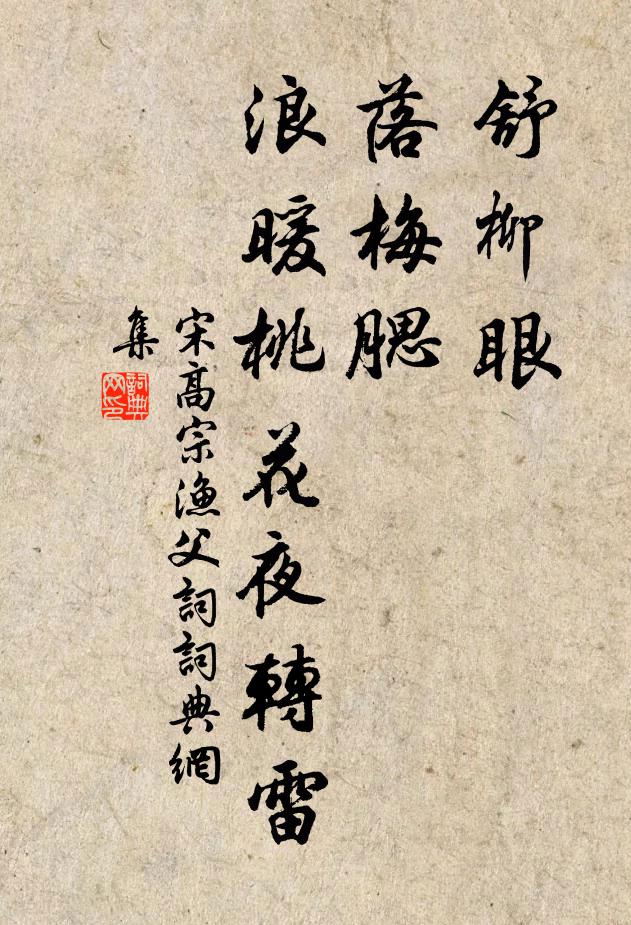 舒柳眼
落梅腮
浪暖桃花夜轉雷
宋高宗漁父詞詞典網
集
詞典
网印